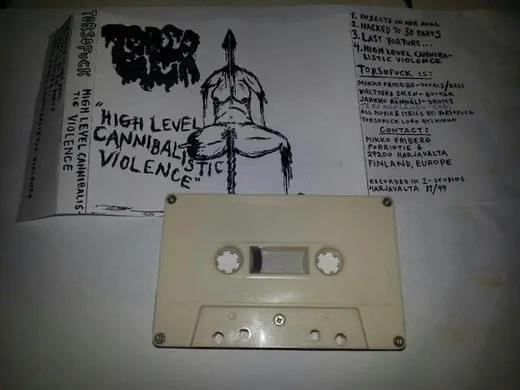 TORSOFUCK
HIGH LEVEL CANNIBALIS-
TIC VIOLENCE
TORSO
FUCK
"HIGH LEVEL
CANNIBALISTIC
VIOLENCE"
1. INSECTS IN HER ANAL
2. HACKED TO 50 PARTS
3. LAST TORTURE...
4. HIGH LEVEL CANNIBA-
LISTIC VIOLENCE
TORSOFUCK IS:
MIKKO FRIBERG-VOCALS/BASS
VALTTERI SALEN-GUITAR
JARKKO RÄNNÄLI-DRUMS
ALL MUSIC & LYRICS BY: TORSOFUCK
TORSOFUCK LOGO BY: MIKKO
CONTACT:
MIKKO FRIBERG
PORRINTIE 6
29200 HARJAVALTA
FINLAND, EUROPE
RECORDED IN Z-STUDIOS
HARJAVALTA 11/99